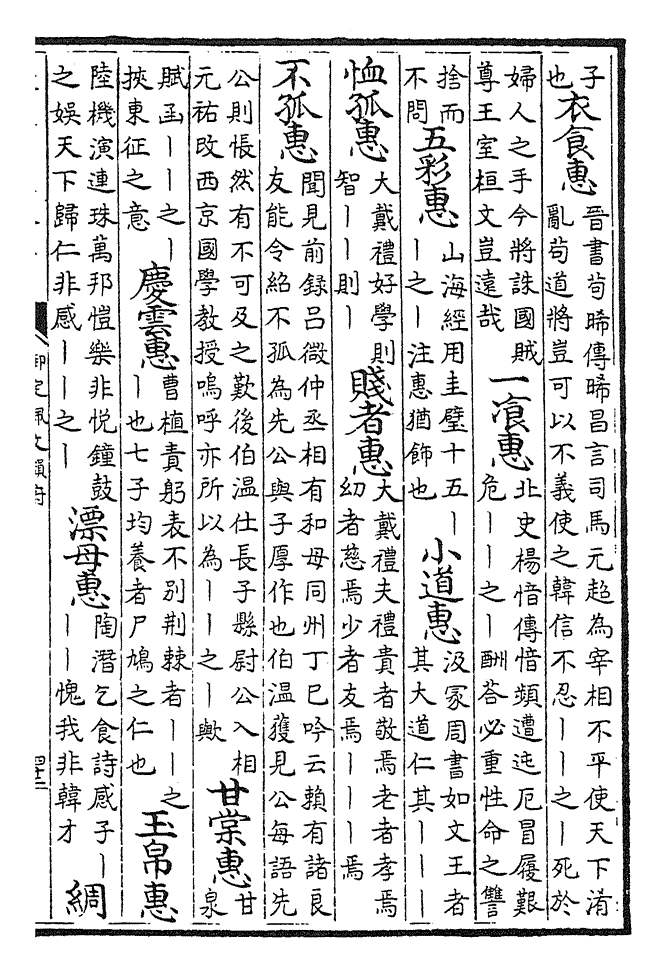 子
也
衣食惠
晉書荀晞傳晞昌言司馬元超為宰相不平使天下淆
亂苟道將豈可以不義使之韓信不忍丨丨之丨死於
婦人之手今將誅國賊
尊王室桓文豈遠哉
一飡惠
北史楊愔傳愔頻遭迍厄冒履艱
危丨丨之丨酬荅必重性命之讐
捨而
不問
五彩惠
山海經用圭璧十五丨
丨之丨注惠猶飾也
小道惠
汲冢周書如文王者
其大道仁其丨丨丨
恤孤惠
大戴禮好學則
智丨丨則丨
賤者惠
大戴禮夫禮貴者敬焉老者孝焉
幼者慈焉少者友焉丨丨丨焉
不孤惠
聞見前録吕微仲丞相有和母同州丁巳吟云賴有諸良
友能令紹不孤為先公與子厚作也伯温獲見公每語先
公則悵然有不可及之歎後伯温仕長子縣尉公入相
元祐改西京國學教授嗚呼亦所以為丨丨之丨歟
甘棠惠
甘
泉
賦函丨丨之丨
挾東征之意
慶雲惠
曹植責躬表不别荆棘者丨丨之
丨也七子均養者尸鳩之仁也
玉帛惠
陸機演連珠萬邦愷樂非悦鐘鼓
之娱天下歸仁非感丨丨之丨
漂母惠
陶潛乞食詩感子丨
丨丨愧我非韓才
綢
御定佩文韻府